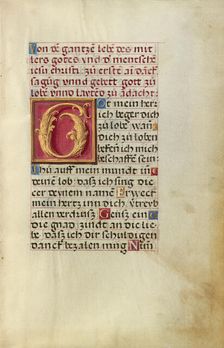 Von de gantzē lebē des mit
lers gotes vnd d menschē
ihesu christi zu erst ai dāck
sagūg vnnd gebett gott zu
lobē vnnd layttēd zu ādacht
Ot mein hertz
ich beger dich
zu lobē wañ
dich zu loben
bekeñ ich mich
beschaffē sein
Thu auff mein mundt in
deinē lob das ich sing die
eer deynem namē Erweck
mein hertz inn dich vtreyb
allen verdrusz Geusz ein
die gnad zündt an die lie
be dasz ich dir schuldigen
danck bezalen mug